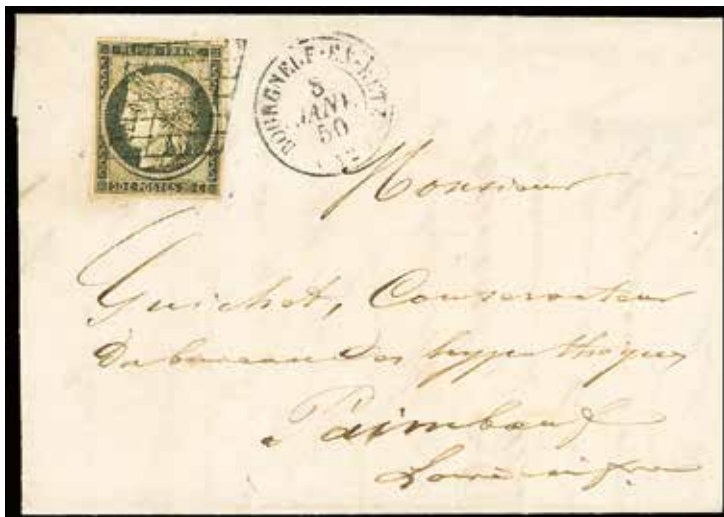 REPUB. FRANC.
20 C POSTES 20 C
BOURGNEUF-EN-RETZ
8
JANV.
50
Monsieur
Guichet, Conservateur
du bureau des hypothèques
Paimboeuf
Loire infre